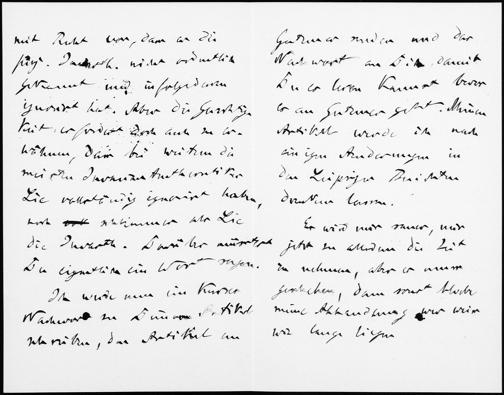 mit Recht vor, dass er die
proj. Invarth. nicht ordentlich
gekannt und infolgedessen
ignoriert hat. Aber die Gerechtig
keit erfordert doch auch zu er-
wähnen, dass bei weitem die
meisten Invariantentheoretiker
Lie vollständig ignoriert haben,
noch schlimmer als Lie
die Invarth. Darüber müsstest
Du eigentlich ein Wort sagen.
Ich werde nun ein kurzes
Nachwort zu Deinem Artikel
schreiben, den Artikel an
senden und das
Nachwort an Dich, damit
Du es lesen kannst bevor
es an geht. Meinen
Artikel werde ich nach
einigen Änderungen in
den Leipziger Berichten
drucken lassen.
Es wird mir sauer, mir
jetzt zu alledem die Zeit
zu nehmen, aber es muss
geschehen, denn sonst bleibt
meine Abhandlung wer weiss
wie lange liegen